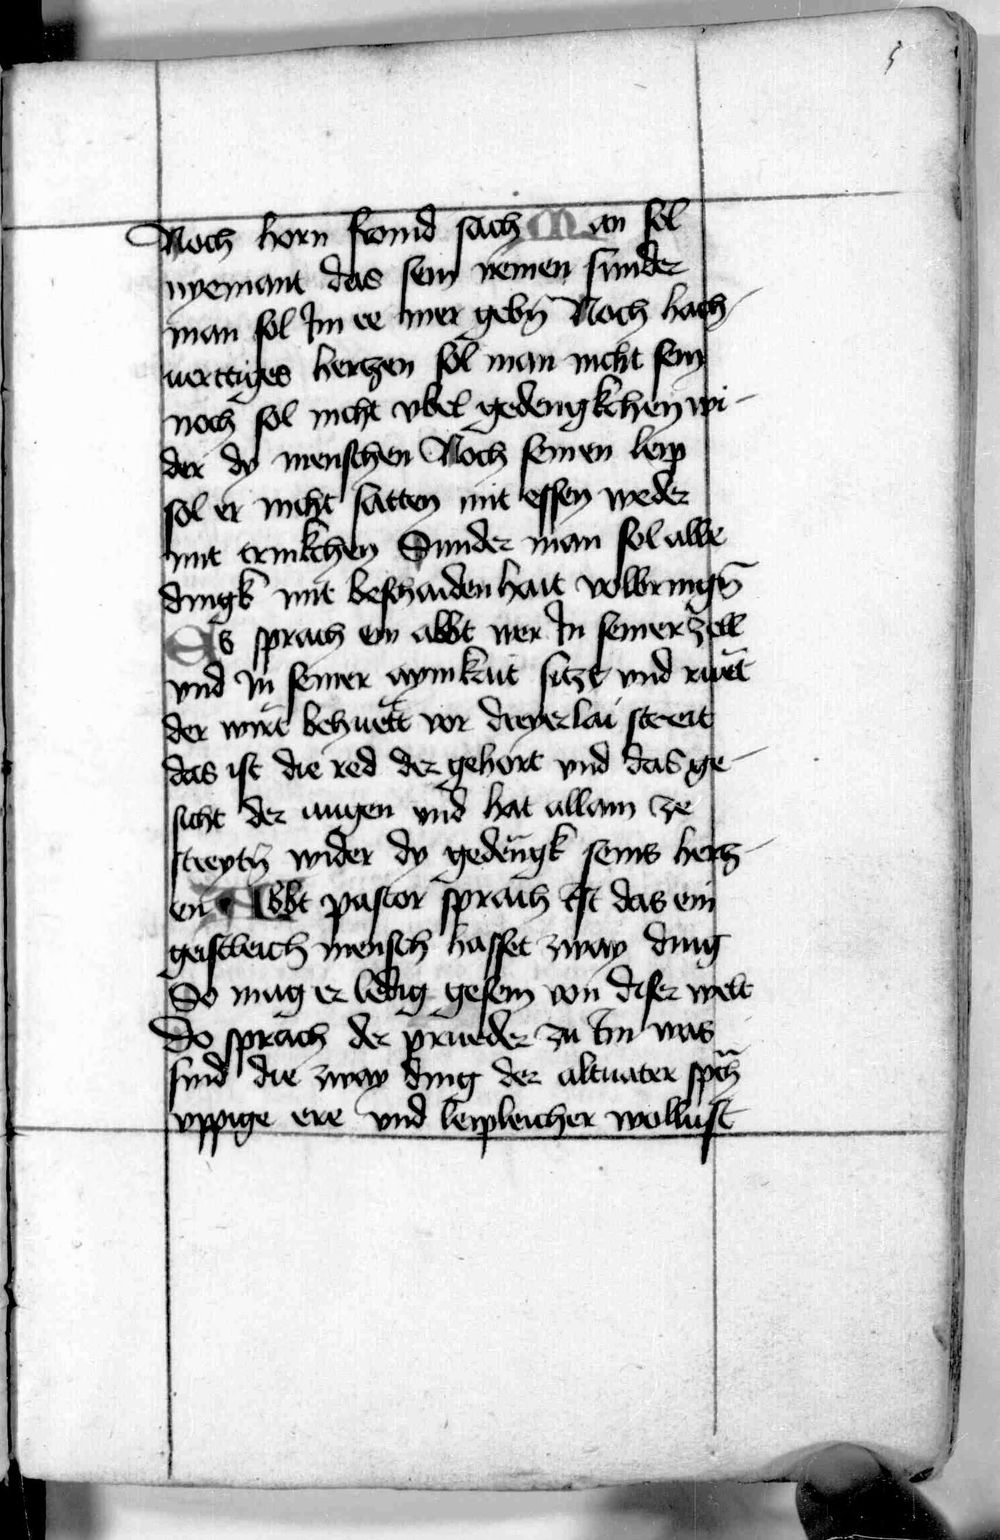 5
Noch horn fromd sach Man sol
nyemant das sein nemen sunder
man sol Im ee mer gebn̄ Noch hach-
uerttiges hertzen sol man nicht sein
noch sol nicht vbel gedengkchen wi-
der dy menschen Noch seinen leip
sol er nicht satten mit essen weder
mit trinkchen Sunder man sol alle
dingk mit beschaidenhait volbringn̄
Es sprach ein abbt wer In seiner zell
vnd In seiner aynikait sitzt vnd ruet
der wirt behuett vor dreyerlai streit
das ist die red der gehort vnd das ge-
sicht der augen vnd hat allain ze
streytn̄ wider dy gedengk seins hertz-
en Abbt pastor sprach Ist das ein
geistleich mensch hasset zway ding
So mag er ledig gesein von diser welt
Do sprach der prueder zu Im was
sind die zway ding der altuater spch̄
vppige ere vnd leipleicher wollust